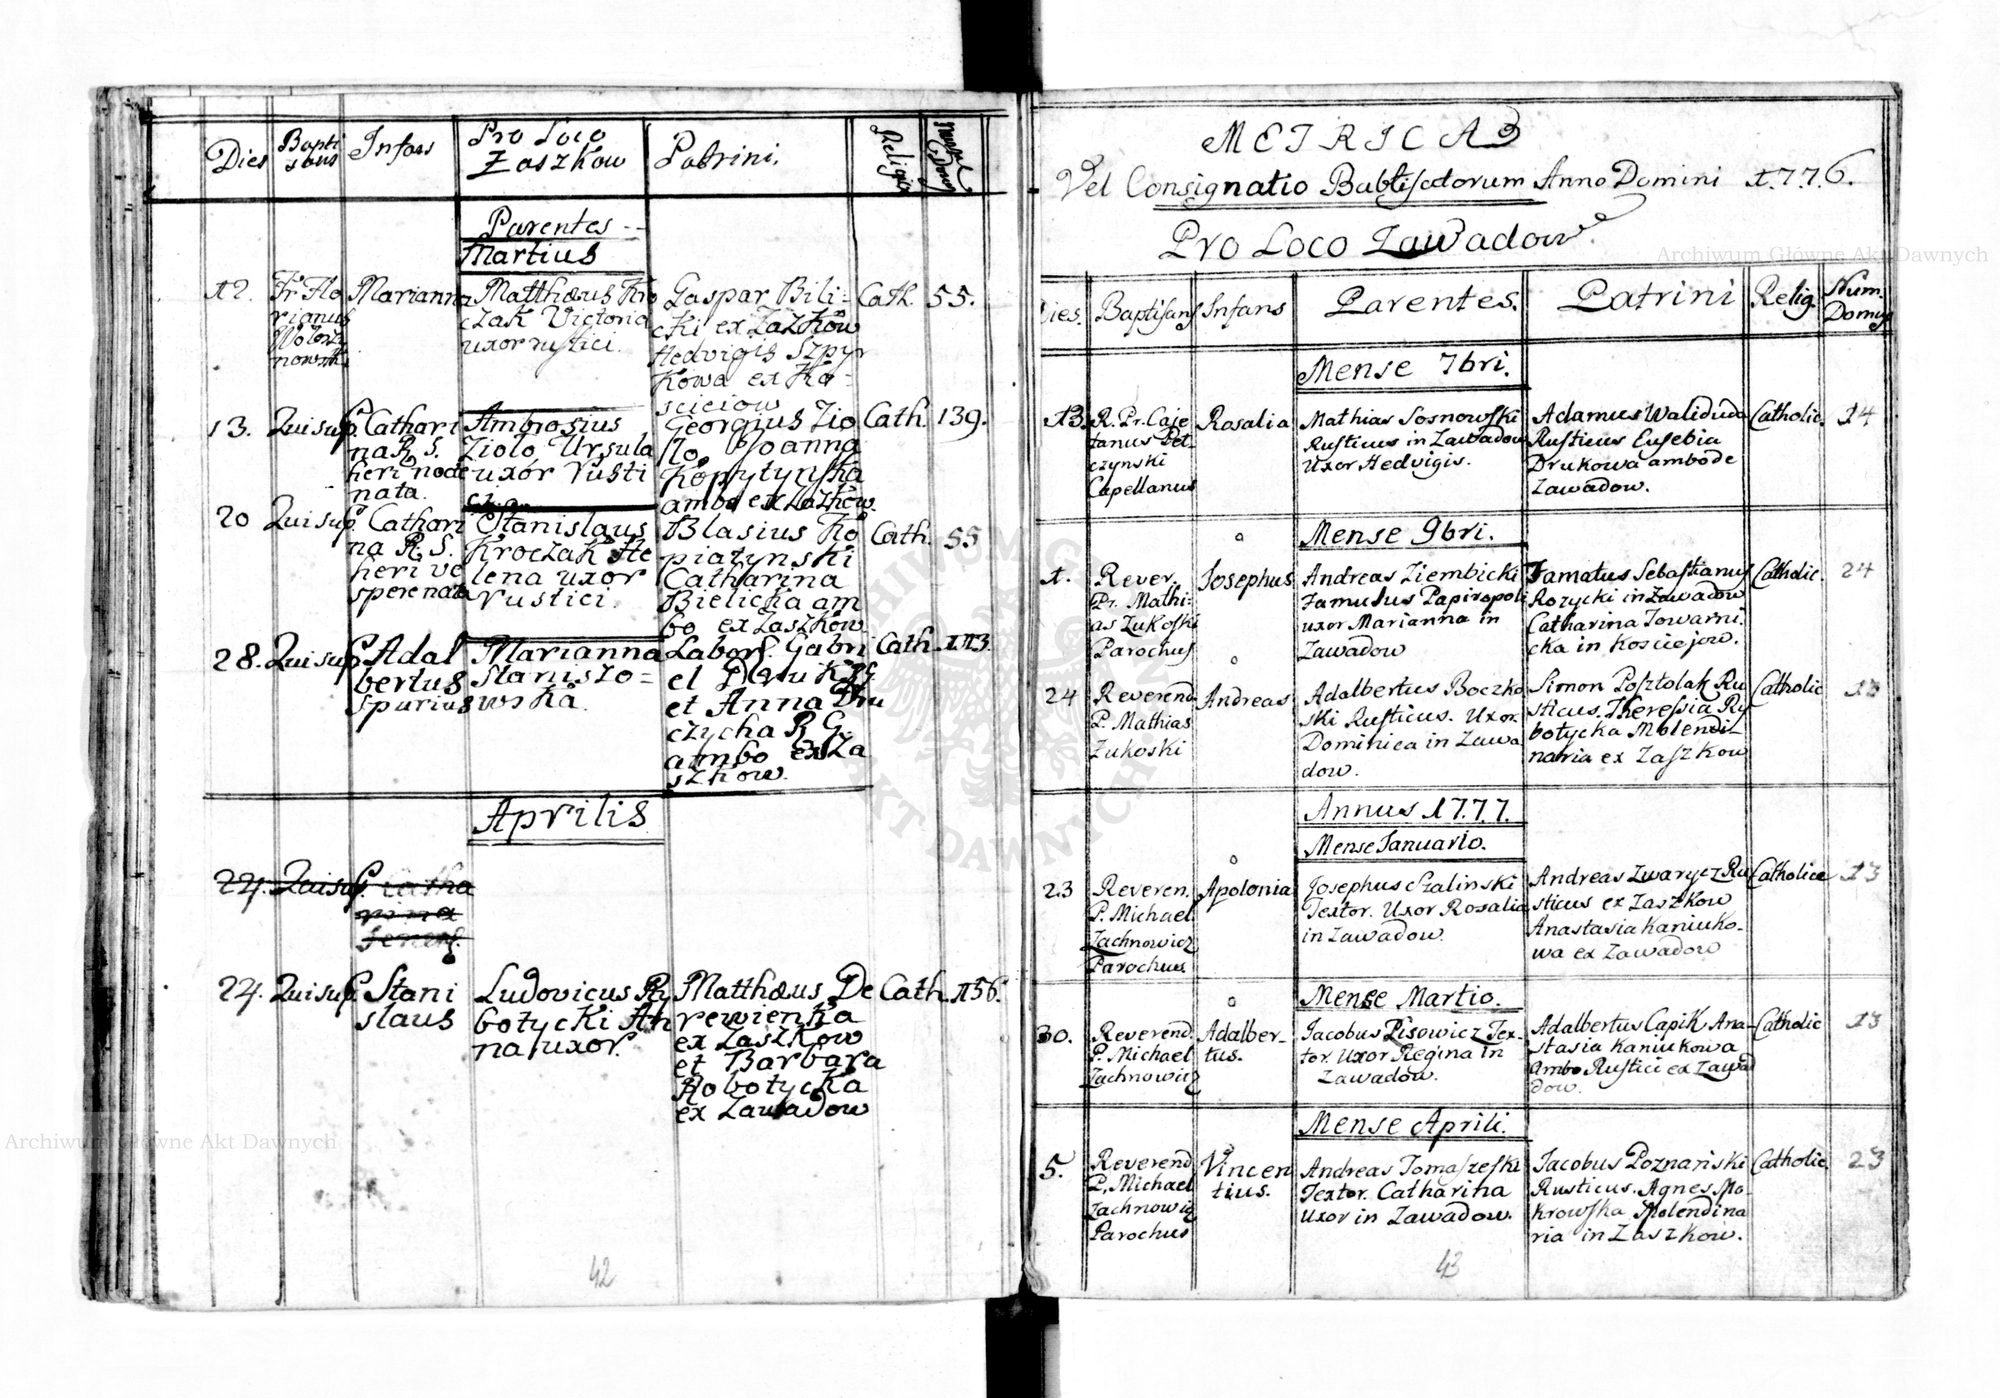 Dies
Bapti
sans
Infans
Pro Loco
Zaszkow
Patrini.
Religio
Parentes
Martius
12.
Fr Flo
rianus
Marianna
Matthæus Kro
czak Victoria
uxor rustici.
Gaspar Bili-
cki ex Zaszkow
Hedvigis Szpyr
kowa ex Ko-
sciciow
Cath.
55.
13.
Qui sup.
Cathari
na R. S.
heri nocte
nata.
Ambrosius
Ziolo Ursula
uxor rusti
Georgius Zio
lo Joanna
Kopytynska
ambo ex Zaszkow.
Cath.
139.
20
Qui sup.
Cathari
na R. S.
heri ve
spere nata
Stanislaus
Kroczak He
lena uxor
rustici.
Blasius Ko
piatynski
Catharina
Bielicka am
bo ex Zaszkow.
Cath.
55
28.
Qui sup.
Adal
bertus
spurius
Marianna
Staniszo-
wska.
Labor. Gabri
el
et Anna Dru
czycha R. G.
ambo ex Za
szkow.
Cath.
113
Aprilis
24.
Qui sup.
Catha
rina
24.
Qui sup.
Stani
slaus
Ludovicus Ry
botycki An
na uxor.
Matthæus De
rewienka
ex Zaszkow
et Barbara
Robotycka
ex Zawadow
Cath.
156.
42
METRICA
Vel Consignatio Babtisatorum Anno Domini 1.7.7.6.
Pro Loco Zawadow
Dies.
Baptisans
Infans
Parentes.
Patrini
Relig.
Num.
Domus
Mense 7bri.
13.
R. Pr. Caje
tanus Pet-
czynski
Capellanus
Rosalia
Mathias Sosnowski
Rusticus in Zawadow
Uxor Hedvigis.
Adamus Waliduda
Rusticus Eusebia
Drukowa ambo de
Zawadow.
Catholic.
14
Mense 9bri.
1.
Rever.
Pr. Mathi-
as Zukoski
Parochus
Josephus
Andreas Ziembicki
Famulus Papiropoli
uxor Marianna in
Zawadow
Famatus Sebastianus
Rozycki in Zawadow
Catharina Towarni-
cka in Kosciejow.
Catholic.
24
24
Reverend
P. Mathias
Zukoski
Andreas
Adalbertus Boczko
ski Rusticus. Uxor
Dominica in Zawa
dow.
Simon Posztolak Ru
sticus. Theresia Ry
botycka Molendi-
naria ex Zaszkow
Catholic
13
Annus 1777.
Mense Januario.
23
Reveren.
P. Michael
Zachnowicz
Parochus
Apolonia
Josephus Szalinski
Textor. Uxor Rosalia
in Zawadow.
Andreas Zwarycz Ru
sticus ex Zaszkow
Anastasia Kaniuko-
wa ex Zawadow
Catholice
13
Mense Martio.
30.
Reverend.
P. Michael
Zachnowicz
Adalber-
tus.
Jacobus Pisowicz Tex-
tor. Uxor Regina in
Zawadow.
Adalbertus Capik Ana-
stasia Kaniukowa
ambo Rustici ex Zawa
dow.
Catholic
13
Mense Aprili.
5.
Reverend
P. Michael
Zachnowicz
Parochus
Vincen
tius.
Andreas Tomaszeski
Textor. Catharina
Uxor in Zawadow.
Jacobus Poznanski
Rusticus. Agnes Mo-
krowska Molendina
ria in Zaszkow.
Catholic.
23
43
Archiwum Główne Akt Dawnych
Archiwum Główne Akt Dawnych